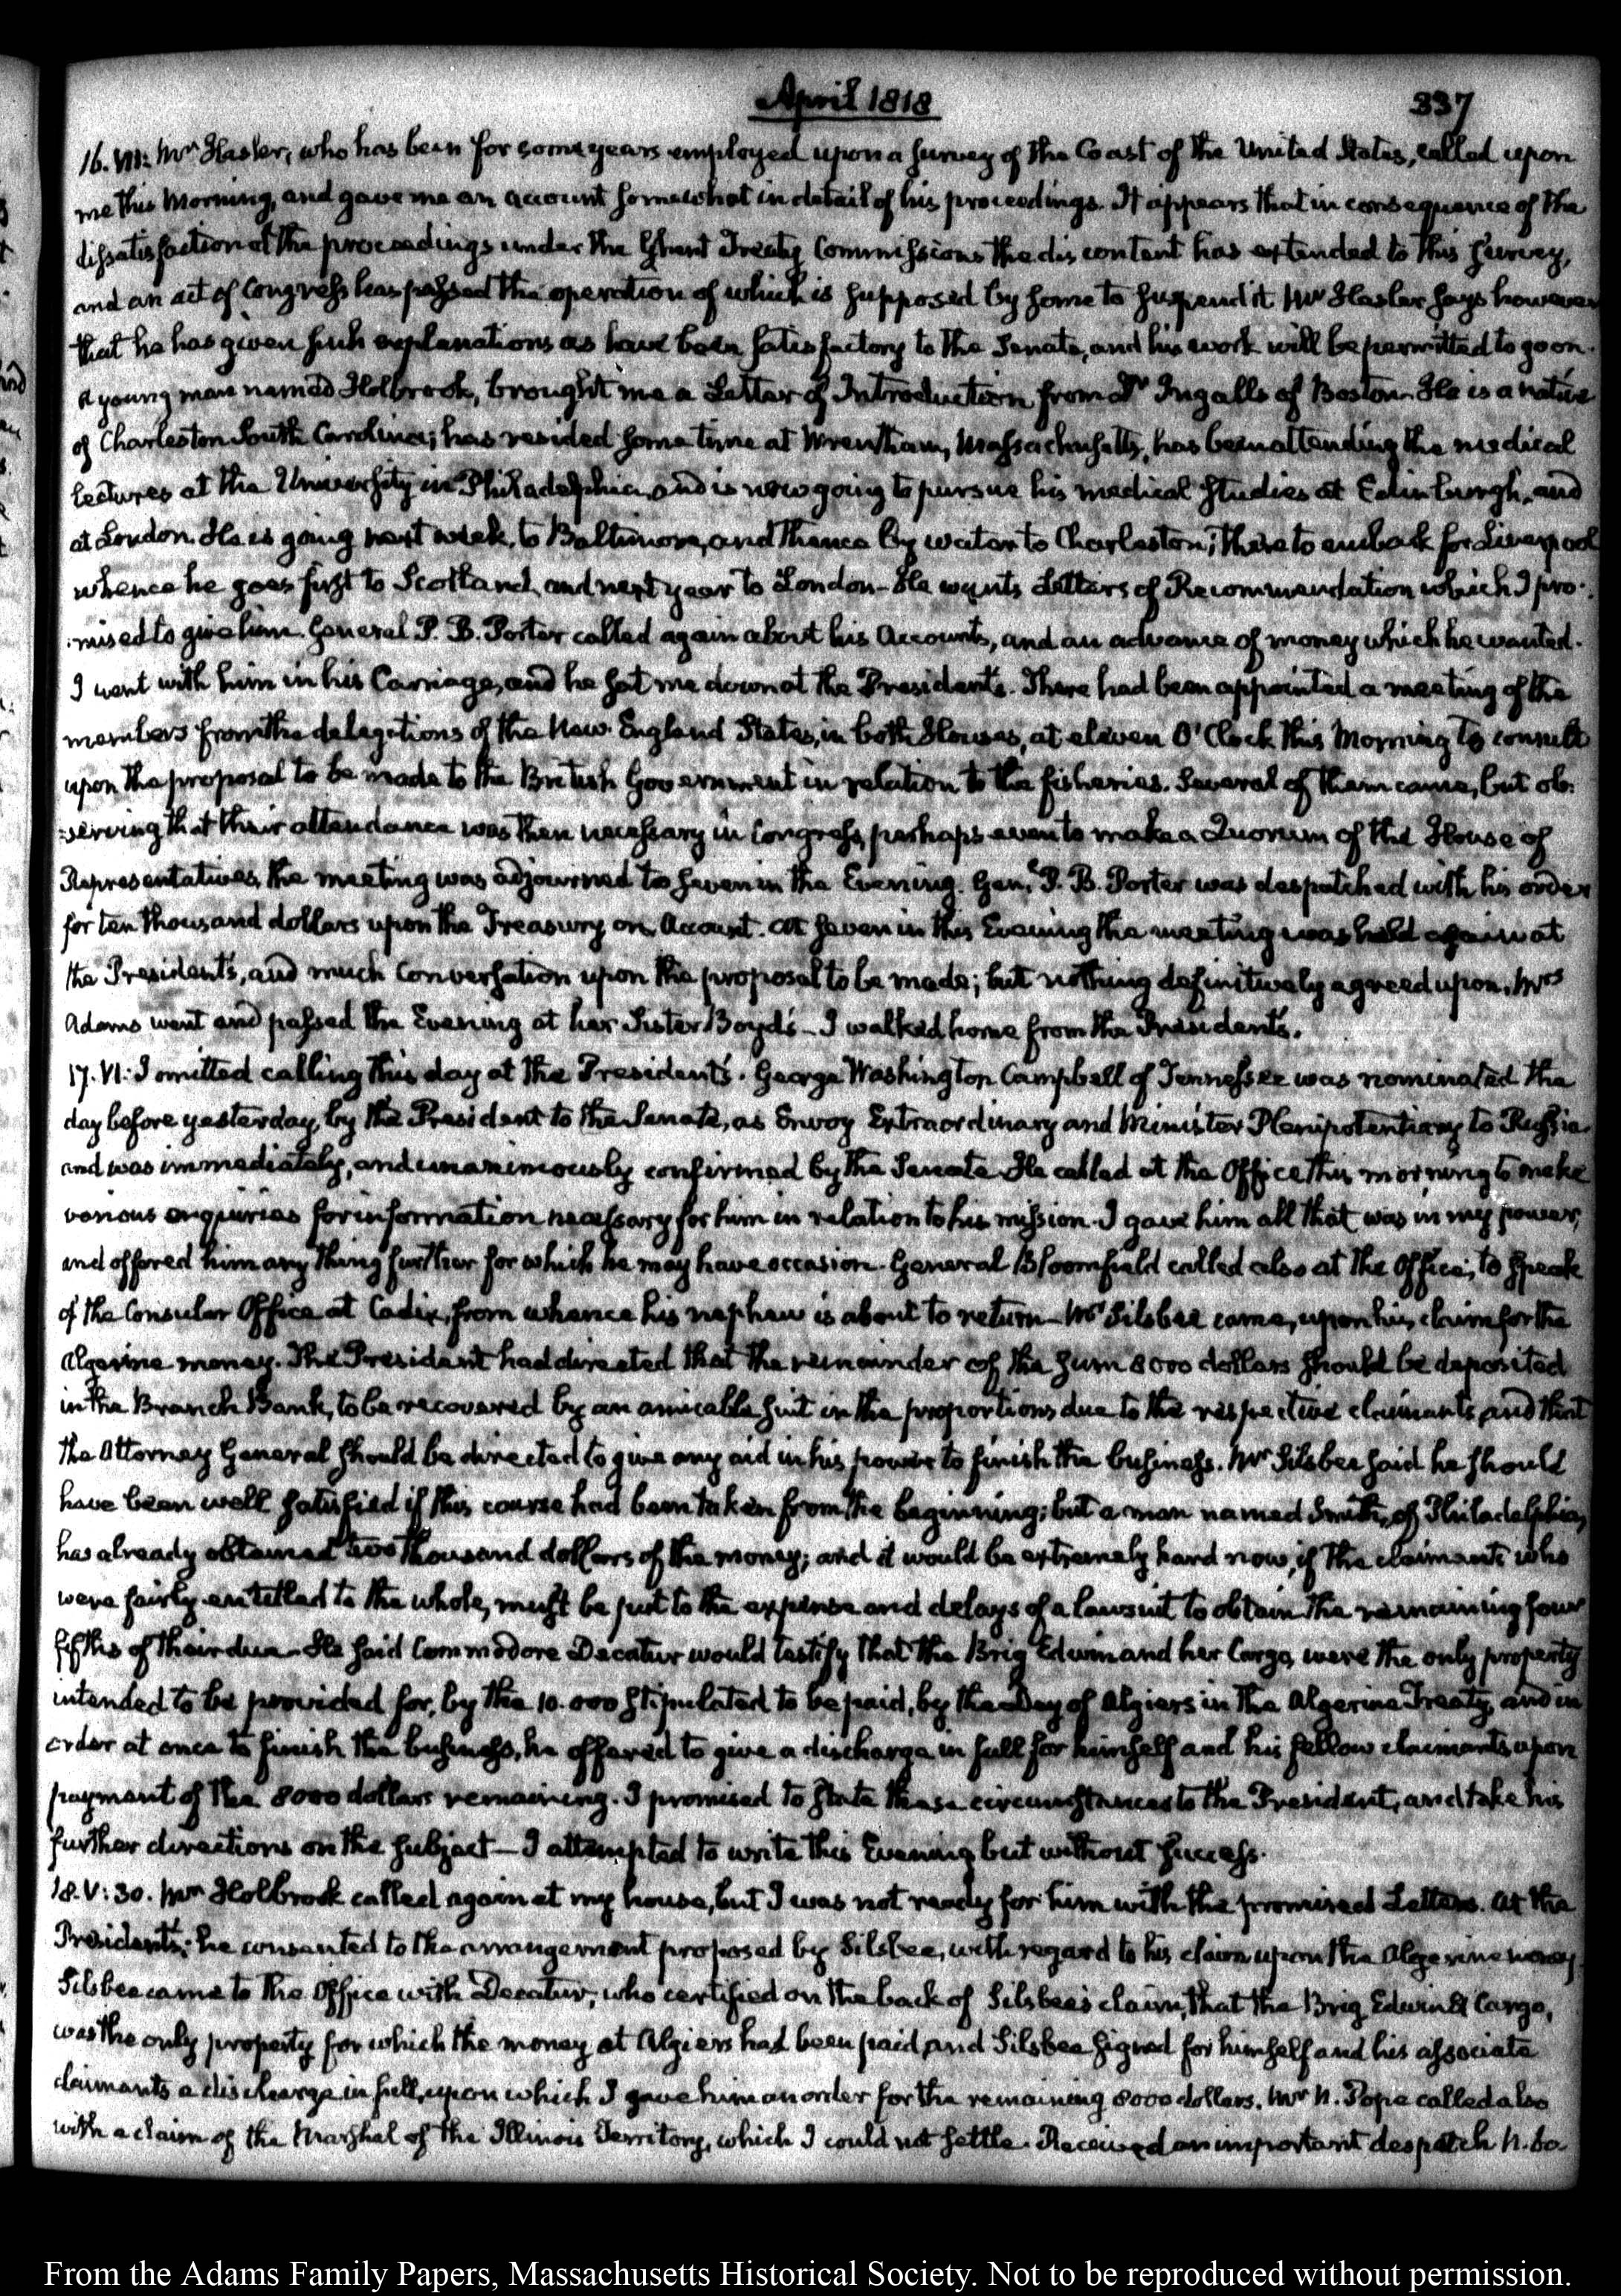 April 1818
337
16. VII: Mr Hasler, who has been for some years employed upon a survey of the Coast of the United States, called upon
me this Morning, and gave me an account somewhat in detail of his proceedings. It appears that in consequence of the
dissatisfaction at the proceedings under the Ghent Treaty Commissions the discontent has extended to this survey,
and an act of Congress has passed the operation of which is supposed by some to suspend it Mr Hasler says however
that he has given such explanations as have been satisfactory to the Senate, and his work will be permitted to go on.
A young man named Holbrook, brought me a Letter of Introduction from Dr Ingalls of Boston. He is a native
of Charleston South Carolina; has resided some time at Wrentham, Massachusetts, has been attending the medical
lectures at the University in Philadelphia, and is now going to pursue his medical studies at Edinburgh, and
at London. He is going next week, to Baltimore, and thence by water to Charleston; there to embark for Liverpool
whence he goes first to Scotland, and next year to London - He wants Letters of Recommendation which I pro-
:mised to give him. General P. B. Porter called again about his Accounts, and an advance of money which he wanted.
I went with him in his Carriage, and he set me down at the President's. There had been appointed a meeting of the
members from the delegations of the New-England States, in both Houses, at eleven O'Clock this Morning to consult
upon the proposal to be made to the British Government in relation to the fisheries. Several of them came, but ob:
:serving that their attendance was then necessary in Congress, perhaps even to make a Quorum of the House of
Representatives, the meeting was adjourned to seven in the Evening. Genl P. B. Porter was despatched with his order
for ten thousand dollars upon the Treasury on Account. At seven in this Evening the meeting was held again at
the President's, and much Conversation upon the proposal to be made; but nothing definitively agreed upon. Mrs
Adams went and passed the Evening at her Sister Boyd's - I walked home from the President's.
17. VI: I omitted calling this day at the President's. George Washington Campbell of Tennessee was nominated the
day before yesterday, by the President to the Senate, as Envoy Extraordinary and Minister Plenipotentiary to Russia
and was immediately, and unanimously confirmed by the Senate. He called at the Office this morning to make
various enquiries for information necessary for him in relation to his mission. I gave him all that was in my power,
and offered him any thing further for which he may have occasion. General Bloomfield called also at the Office; to speak
of the Consular Office at Cadiz, from whence his nephew is about to return - Mr Silsbee came, upon his claim for the
Algerine money. The President had directed that the remainder of the sum 8000 dollars should be deposited
in the Branch Bank, to be recovered by an amicable suit in the proportions due to the respective claimants, and that
the Attorney General should be directed to give any aid in his power to finish the business. Mr Silsbee said he should
have been well satisfied if this course had been taken from the beginning; but a man named Smith, of Philadelphia,
has already obtained two thousand dollars of the money; and it would be extremely hard now, if the claimants who
were fairly entitled to the whole, must be put to the expense and delays of a lawsuit to obtain the remaining four
fifths of their due - He said Commodore Decatur would testify that the Brig Edwin and her Cargo, were the only property
intended to be provided for, by the 10.000 stipulated to be paid, by the Dey of Algiers in the Algerine Treaty, and in
order at once to finish the business, he offered to give a discharge in full for himself and his fellow claimants upon
payment of the 8000 dollars remaining. I promised to state these circumstances to the President, and take his
further directions on the subject - I attempted to write this Evening but without success.
18. V: 30. Mr Holbrook called again at my house, but I was not ready for him with the promised Letters. At the
President's; he consented to the arrangement proposed by Silsbee, with regard to his claim upon the Algerine money.
Silsbee came to the Office with Decatur, who certified on the back of Silsbee's claim, that the Brig Edwin & Cargo,
was the only property for which the money at Algiers had been paid, and Silsbee signed for himself and his associate
claimants a discharge in full, upon which I gave him an order for the remaining 8000 dollars. Mr N. Pope called also
with a claim of the Marshal of the Illinois Territory, which I could not settle. Received an important despatch N. 60
From the Adams Family Papers, Massachusetts Historical Society. Not to be reproduced without permission.